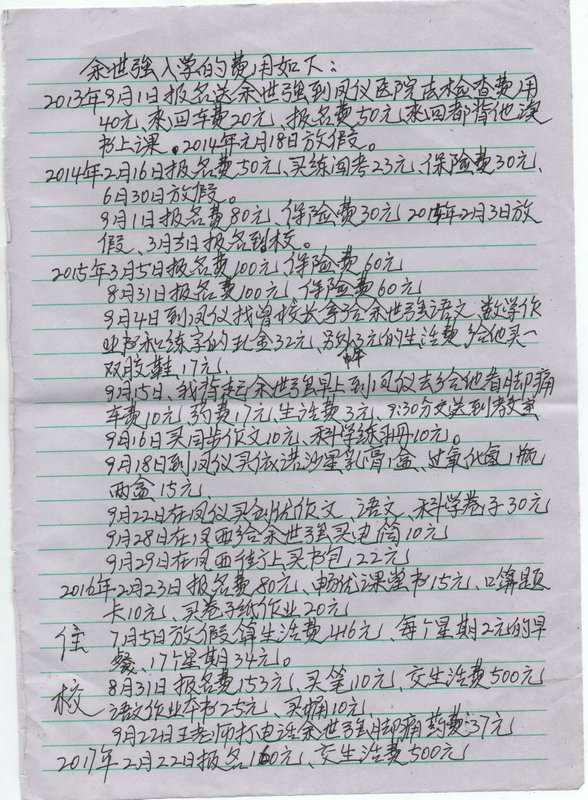 余世强入学的费用如下：
2013年9月1日报名送余世强到凤仪医院去检查费用
40元、来回车费20元、报名费50元来回都背他读
书上课。2014年元月18日放假。
2014年2月16日报名费50元、买练闯考23元、保险费30元、
6月30日放假。
9月1日报名费80元、保险费30元 2015年2月3日放
假、3月3日报名到校。
2015年3月5日报名费100元、保险费60元
8月31日报名费100元、保险费60元
9月4日到凤仪找曾校长拿给余世强语文、数学作
业和练字的现金32元、另外3元的生活费 给他买一
双胶鞋、17元、
9月15日、我背起余世强早上到凤仪去给他看脚痛
车费10元、药费17元、生活费3元、9:30分又送到教室
9月16日买同步作文10元、科学练册10元。
9月18日到凤仪买依诺沙星乳膏1盒、过氧化氢1瓶
两盒15元、
9月22日在凤仪买创优作文、语文、科学卷子30元
9月28日在凤西给余世强买电筒10元
9月29日在凤西街上买书包、22元
2016年2月23日报名费80元、畅优课堂书15元、口算题
卡10元、买卷子纸作业20元
住 7月5日放假算生活费416元、每个星期2元的早
餐、17个星期34元。
校 8月31日报名费153元、买笔10元、交生活费500元
语文作业本书25元、买 10元、
9月22日王老师打电话余世强脚痛药费37元
2017年2月22日报名160元、交生活费500元